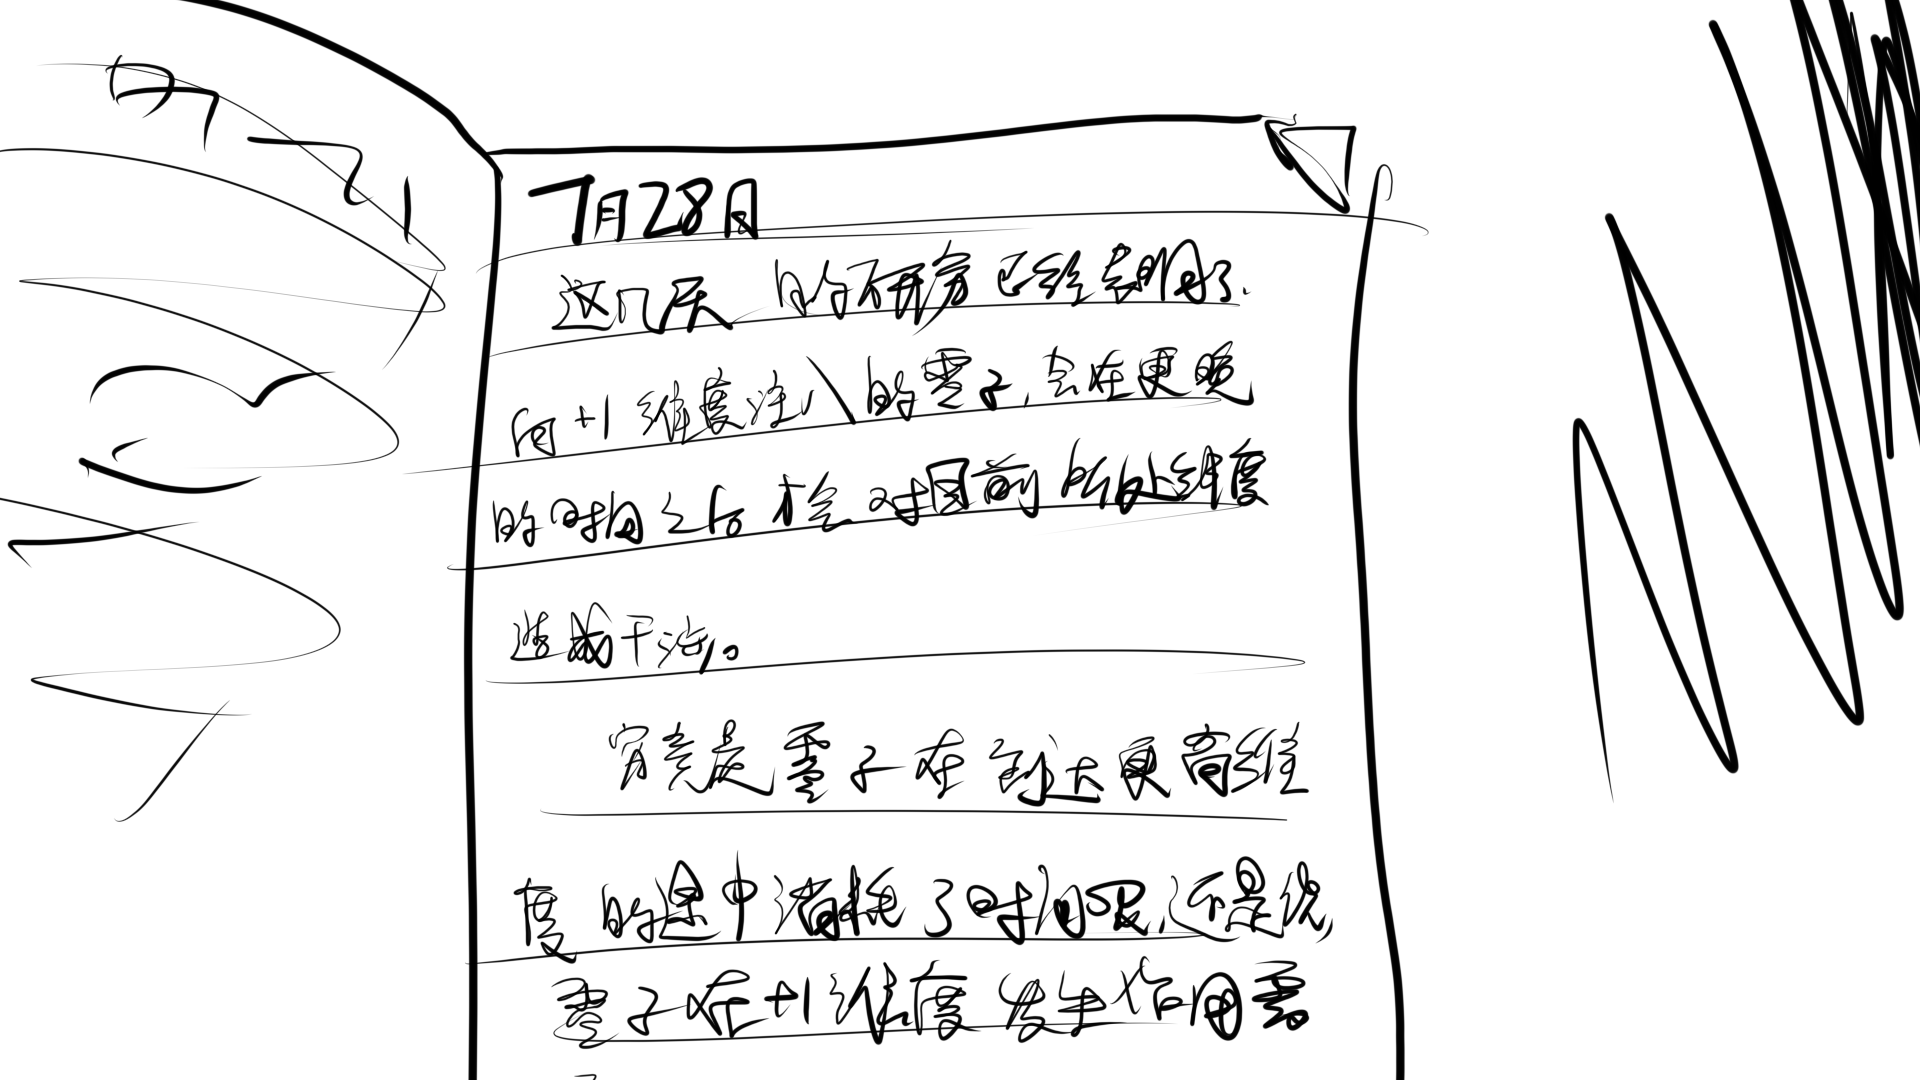 7月28日
这几天的研究已经表明了.
向+1维度注入的零子,会在更晚
的时间之后才会对目前所处维度
造成干涉。
究竟是零子在到达更高维
度的途中消耗了时间呢,还是说,
零子在+1维度发生作用需